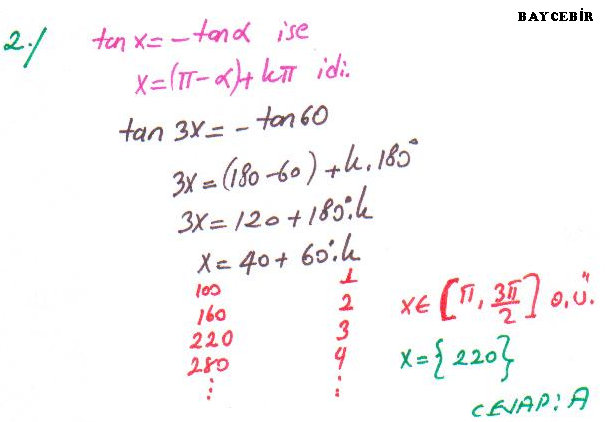 BAYCEBİR
2./ tan x = -tanα ise
x=(π-α)+kπ idi.
tan 3x = -tan60
3x=(180-60)+k.180°
3x=120+180°.k
x=40+60°.k
100 1
160 2
220 3
280 4
⋮ ⋮
x∈[π, 3π/2] o.ü."
x={220}
CEVAP: A